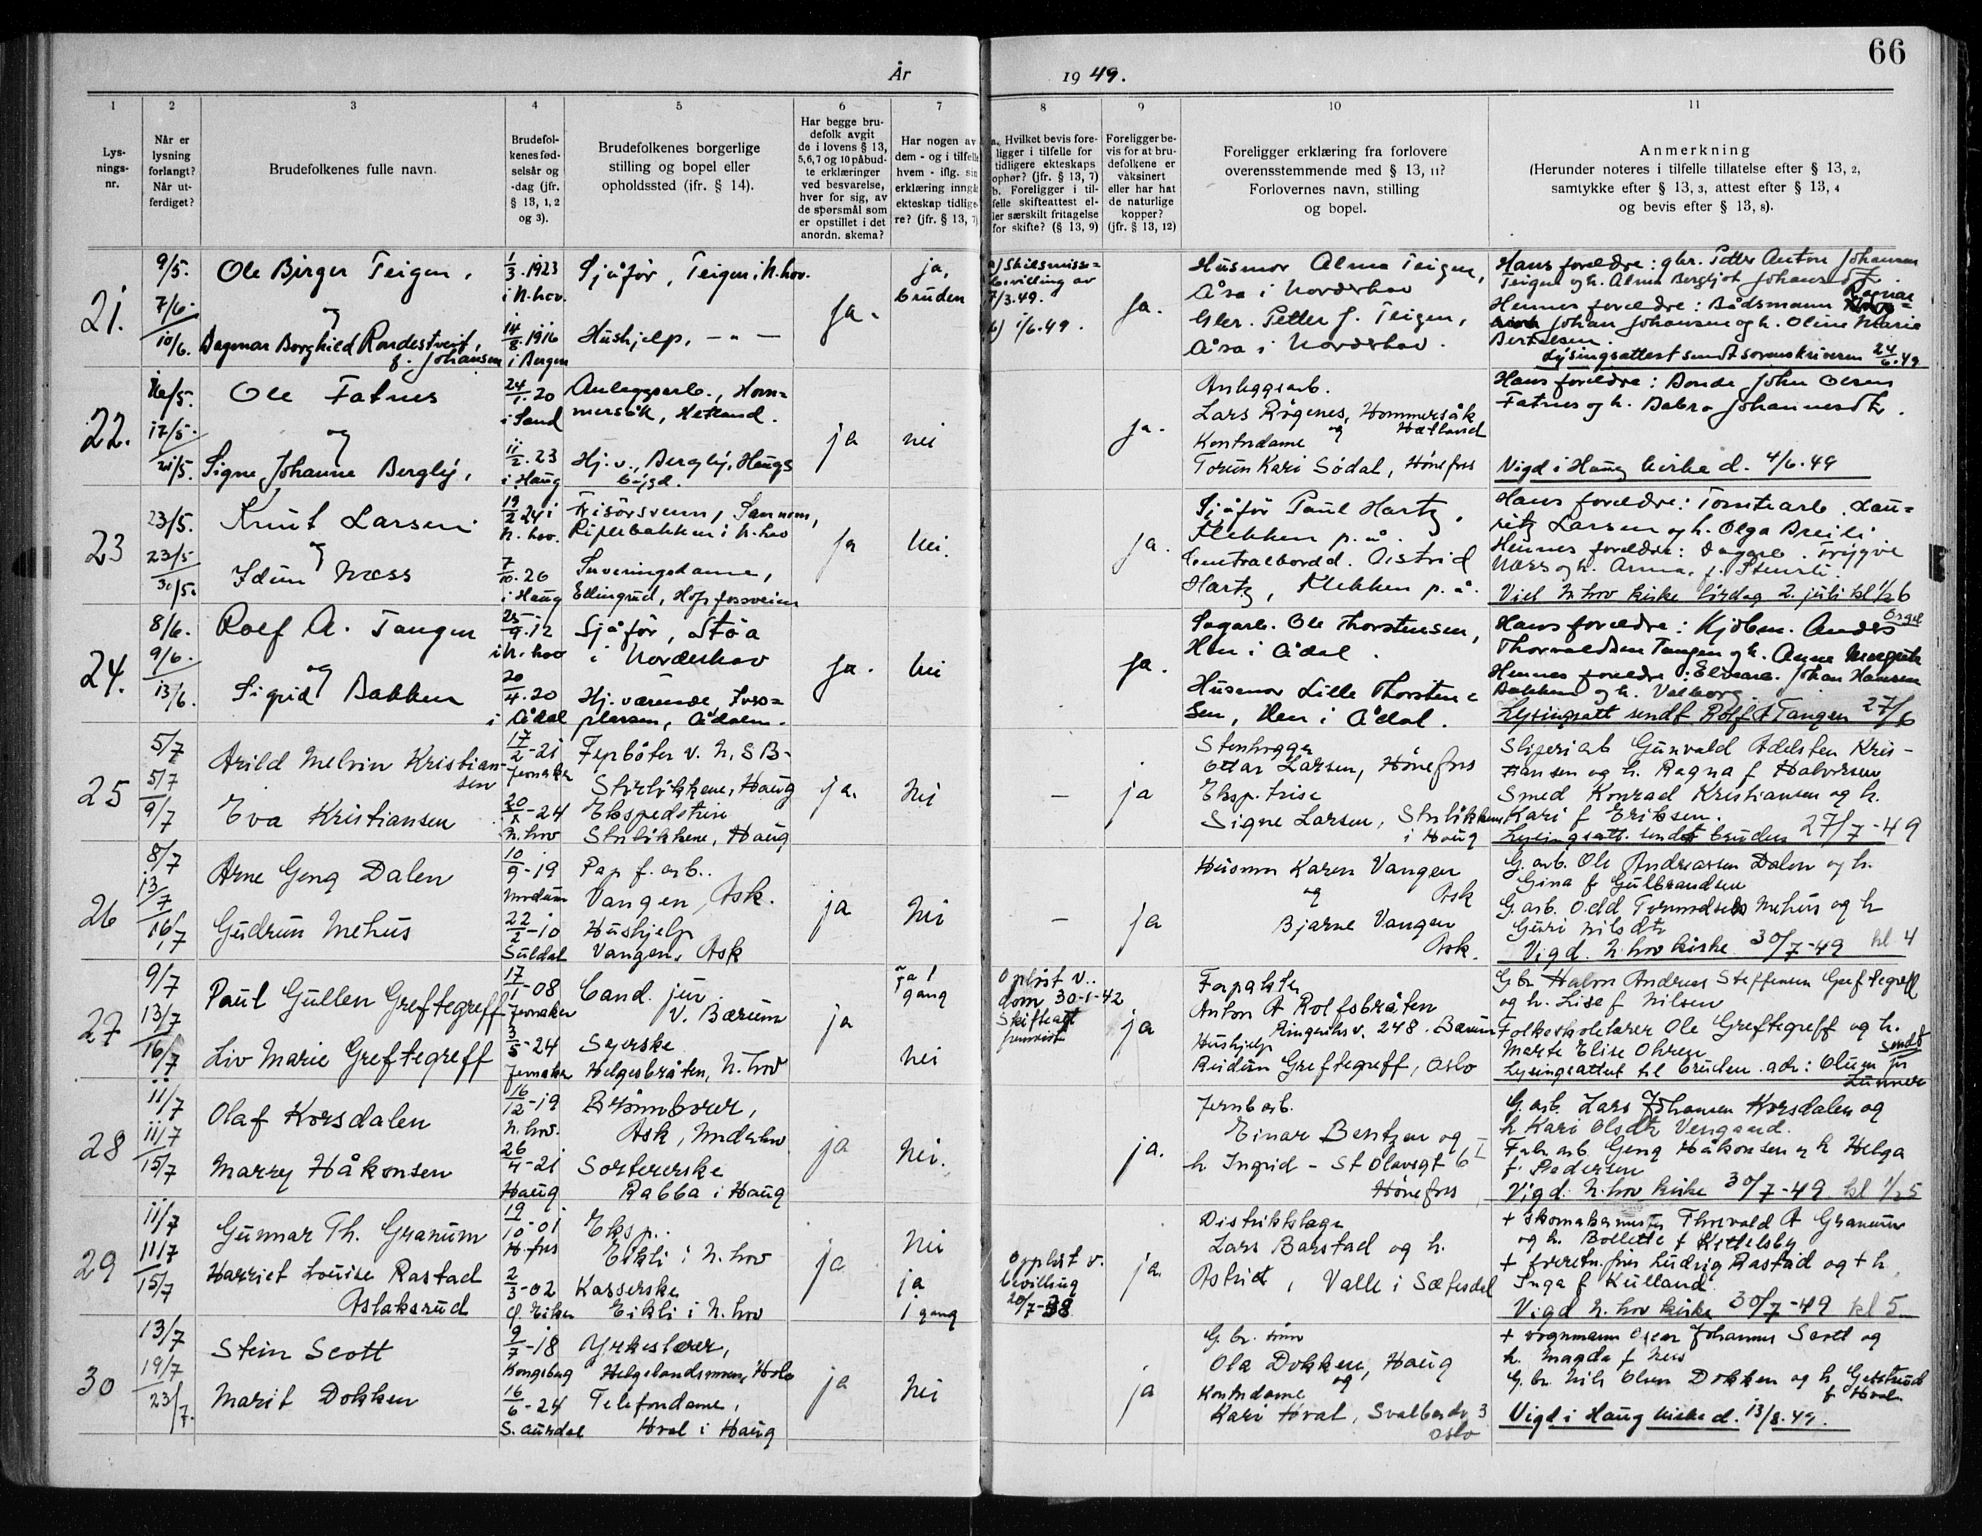 66
År 1949.
1 2 3 4 5 6 7 8 9 10 11
Lys-
nings-
nr.
Når er
lysning
forlangt?
Når ut-
ferdiget?
Brudefolkenes fulle navn.
Brudefol-
kenes fød-
selsår og
-dag (jfr.
§ 13, 1, 2
og 3).
Brudefolkenes borgerlige
stilling og bopel eller
opholdssted (ifr. § 14).
Har begge bru-
defolk avgit
de i lovens § 13,
5,6,7 og 10 påbud-
te erklæringer
ved besvarelse,
hver for sig, av
de spørsmål som
er opstillet i det
anordn. skema?
Har nogen av
dem - og i tilfelle
hvem - iflg. sin
erklæring inngått
ekteskap tidlige-
re? (jfr. § 13, 7)
a. Hvilket bevis fore-
ligger i tilfelle for
tidligere ekteskaps
ophør? (jfr. § 13, 7)
b. Foreligger i til-
felle skifteattest el-
ler særskilt fritagelse
for skifte? (§ 13, 9)
Foreligger be-
vis for at bru-
defolkene er
vaksinert
eller har hat
de naturlige
kopper?
(jfr. § 13, 12)
Foreligger erklæring fra forlovere
overensstemmende med § 13, 11?
Forlovernes navn, stilling
og bopel.
Anmerkning
(Herunder noteres i tilfelle tillatelse efter § 13, 2,
samtykke efter § 13, 3, attest efter § 13, 4
og bevis efter § 13, 8).
21.
9/5.
7/6
10/6.
Ole Birger Teigen,
og
Dagmar Borghild Rondestveit,
f. Johansen
1/3.1923
i N.hov.
14/8.1916
i Bergen
Sjåfør, Teigen i N.hov.
Hushjelp, — " —
Ja.
ja,
bruden
a) Skilsmisse=
bevilling av
7/3.49.
b) 1/6.49.
Ja.
Husmor Alma Teigen,
Åsa i Norderhov
Gbr. Petter J. Teigen,
Åsa i Norderhov.
Hans foreldre: gbr. Petter Anton Johansen
Teigen og h. Alma Bergljot Johansdtr
Hennes foreldre: Bådsmann Ragnar
Johan Johansen og h. Oline Marie
Bertelsen.
Lysingsattest sendt sorenskriveren 24/6.49
22.
16/5.
17/5.
21/5.
Ole Fatnes
og
Signe Johanne Bergly,
24/1.20
i Sand
11/2.23
i Haug
Anleggsarb., Hom=
mersåk, Hetland.
Hj.v., Bergly, Haugs
bygd.
ja
nei
ja.
Anleggsarb.
Lars Røgenes, Hommersåk
og Hetland
Kontordame
Torun Kari Sødal, Hønefoss
Hans foreldre: Bonde John Olsen
Fatnes og h. Dabra Johannesdtr.
Vigd i Haug kirke d. 4/6.49
23
23/5.
23/5
30/5.
Knut Larsen
og
Idun Næss
19/2.24 i
N.hov.
7/10.26
i Haug
Frisørsvenn, Sannum,
Riperbakken i N.hov
Serveringsdame,
Ellingrud, Hofsfossveien
Ja
Nei.
Ja.
Sjåfør Paul Hartz,
Klekken p.å.
Sentralbordd. Astrid
Hartz, Klekken p.å.
Hans foreldre: Tomtearb. Lau-
ritz Larsen og h. Olga Breili
Hennes foreldre: Sagarb. Trygve
Næss og h. Anna, f. Stensli.
Viet N.hov kirke lørdag 2. juli kl 1/2 6
24.
8/6.
9/6.
13/6.
Rolf A. Tangen
og
Sigrid Bakken
25/9.12
i N.hov
20/4.20
i Ådal
Sjåfør, Støa
i Norderhov
Hj. værende, Foss=
plassen, Ådalen.
Ja.
Nei
Ja.
Sagarb. Ole Thorstensen,
Hen i Ådal.
Husmor Lilli Thorsten=
sen, Hen i Ådal.
Hans foreldre: Kjøbm. Anders
Thorvaldsen Tangen og h. Anne Margrete
Hennes foreldre: Elvearb. Johan Hansen
Bakken og h. Valborg.
Lysingsatt sendt Rolf A Tangen 27/6
25
5/7
5/7
9/7
Arild Melvin Kristian-
sen
Eva Kristiansen
17/2-21
Jevnaker
20/5-24
N.hov
Feibøter v. N.S.B-
Stirlikkene, Haug
Ekspeditrise
Strilikkene, Haug
ja.
Nei
—
ja
Stenhugger
Ottar Larsen, Hønefoss
Eksp.trise
Signe Larsen, Strilikken
i Haug
Sliperiarb Gunvald Adelsten Kris-
tiansen og h. Ragna f Halvorsen
Smed Konrad Kristiansen og h.
Kari f Eriksen.
Lysingsatt. sendt bruden 27/7-49
26
8/7
13/7
16/7
Arne Georg Dalen
Gudrun Mehus
10/9-19
Modum
22/2-10
Suldal
Pap f. arb.
Vangen, Ask.
Hushjelp
Vangen, Ask
ja
Nei
—
ja
Husmor Karen Vangen
og Ask
Bjarne Vangen
Ask.
G.arb. Ole Andreasen Dalen og h.
Gina f Gulbrandsen
G.arb. Odd Tormodsen Mehus og h
Guri Nilsdtr
Vigd. N.hov kirke 30/7-49 kl 4
27
9/7
13/7
16/7
Paul Gullen Greftegreff
Liv Marie Greftegreff
17/1-08
Jevnaker
3/5-24
Jevnaker
Cand. jur
V. Bærum
Syerske
Helgesbråten, N.hov
ja
Ja 1
gang
Nei
Opløst v.
dom 30-1-42
Skifteatt
fremvist
ja
Forpakter
Anton A Rolfsbråten
Ringeriksv. 248. Bærum
Hushjelp
Reidun Greftegreff, Oslo
Gbr Halvor Andreas Steffensen Greftegreff
og h. Lise f Nilsen
Folkeskolelærer Ole Greftegreff og h.
Marte Elise Ohren
sendt
Lysingsattest til bruden. adr: Olum pr
Lunner
28
11/7
11/7
15/7
Olaf Korsdalen
Marry Håkonsen
16/12-19
N.hov.
26/4-21
Haug
Brønnborer,
Ask, Norderhov
Sortererske
Rabba i Haug
ja
Nei.
ja.
Jernbarb.
Einar Bentzen og
h Ingrid - St Olavsgt 6 I
Hønefoss
G.arb. Lars Johansen Korsdalen og
h Kari Olsdtr Vengaard.
Fabr.arb Georg Håkonsen og h Helga
f. Pedersen
Vigd. N.hov kirke 30/7-49 kl 1/2 5
29
11/7
11/7
15/7
Gunnar Th. Granum
Harriet Louise Rastad
Aslaksrud
19/10-01
H.foss
2/3-02
Ø. Eiker
Eksp.
Eikli i N.hov
Kasserske
Eikli i N.hov
ja
Nei
ja
1 gang
Oppløst v.
bevilling
20/7-38
ja.
Distriktslege
Lars Barstad og h.
Astrid, Valle i Setesdal
+ Skomakermester Thorvald A Granum
og h. Bollette f Kittelsby
+ Forretn.fører Ludvig Rastad og + h.
Inga f Kulland
Vigd N.hov kirke 30/7-49 kl 5
30
13/7
19/7
23/7.
Stein Scott
Marit Dokken
9/7-18
Kongsberg
16/6-24
S. Aurdal
Yrkeslærer,
Helgelandsmoen, Hole
Telefondame,
Hval i Haug
ja
Nei
ja
G.br. sønn
Ola Dokken, Haug
og
Kontordame
Kari Hval, Svalbardv 3
Oslo
+ vognmann Oscar Johannes Scott og
h. Magda f Ness
G.br. Nils Olsen Dokken og h Gjertrud
f Hval
Vigd i Haug kirke d. 13/8.49.